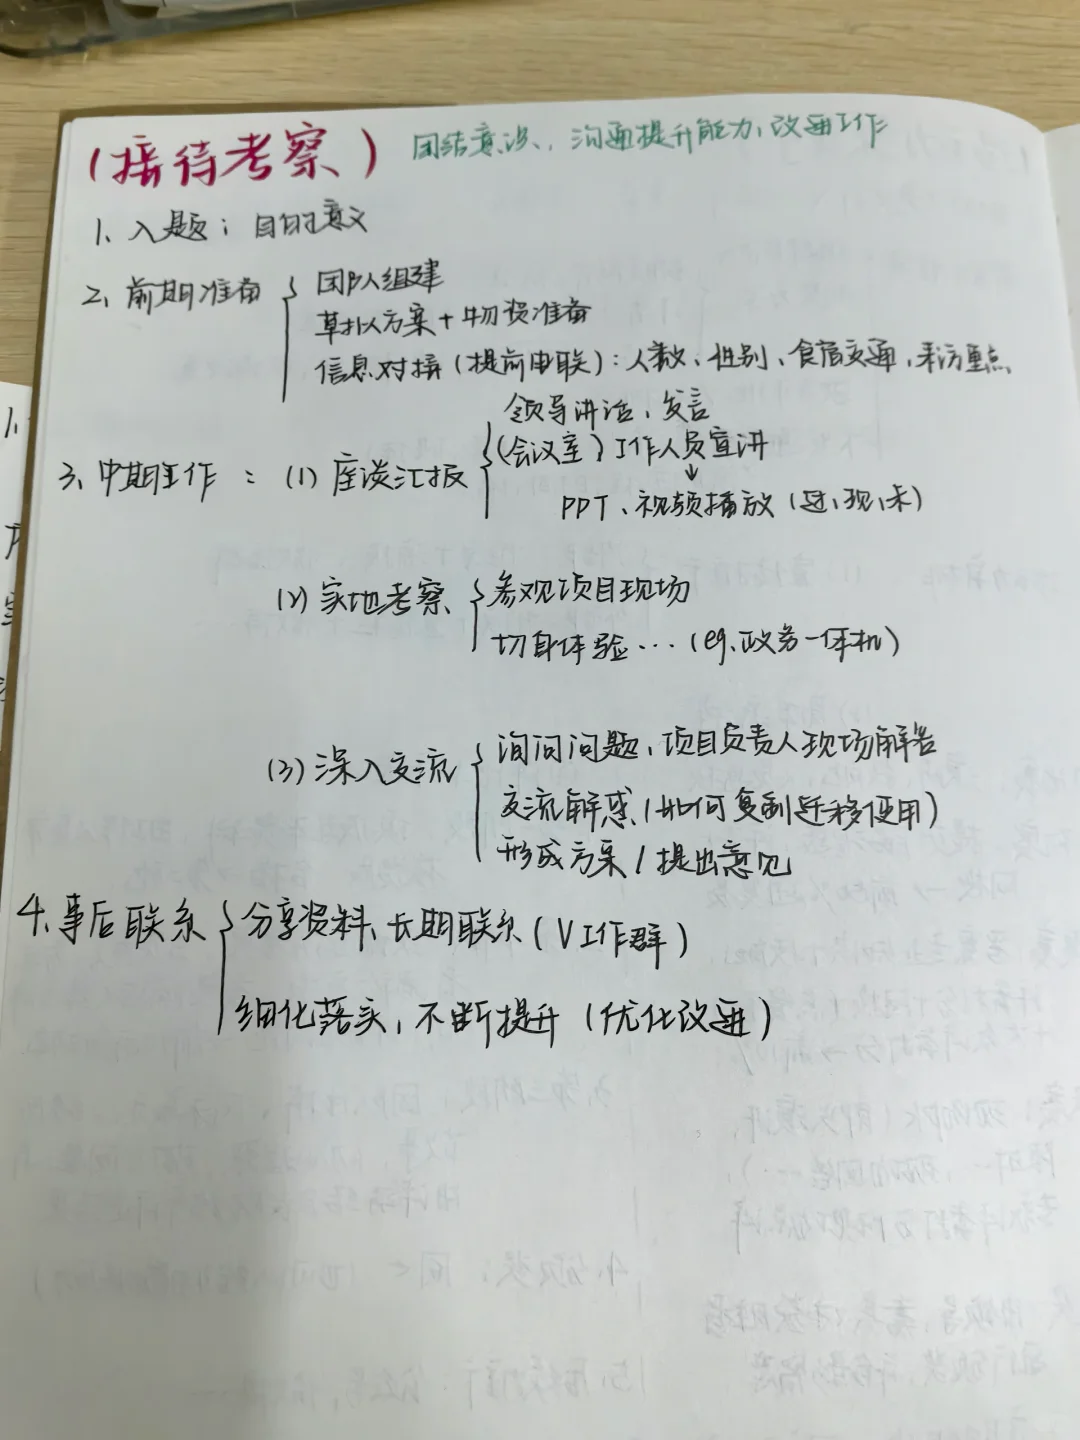 (接待考察) 团结意识、沟通提升能力、改进工作
1、入题：目的意义
2、前期准备 团队组建
草拟方案+物资准备
信息对接(提前电联)：人数、性别、食宿交通，来访重点
领导讲话、发言
3、中期工作：(1)座谈汇报 (会议室)工作人员宣讲
↓
PPT、视频播放(过,现,未)
(2)实地考察 参观项目现场
切身体验…(eg.政务一体机)
(3)深入交流 询问问题，项目负责人现场解答
交流解惑(如何复制迁移使用)
形成方案/提出意见
4、事后联系 分享资料、长期联系(V工作群)
细化落实，不断提升(优化改进)